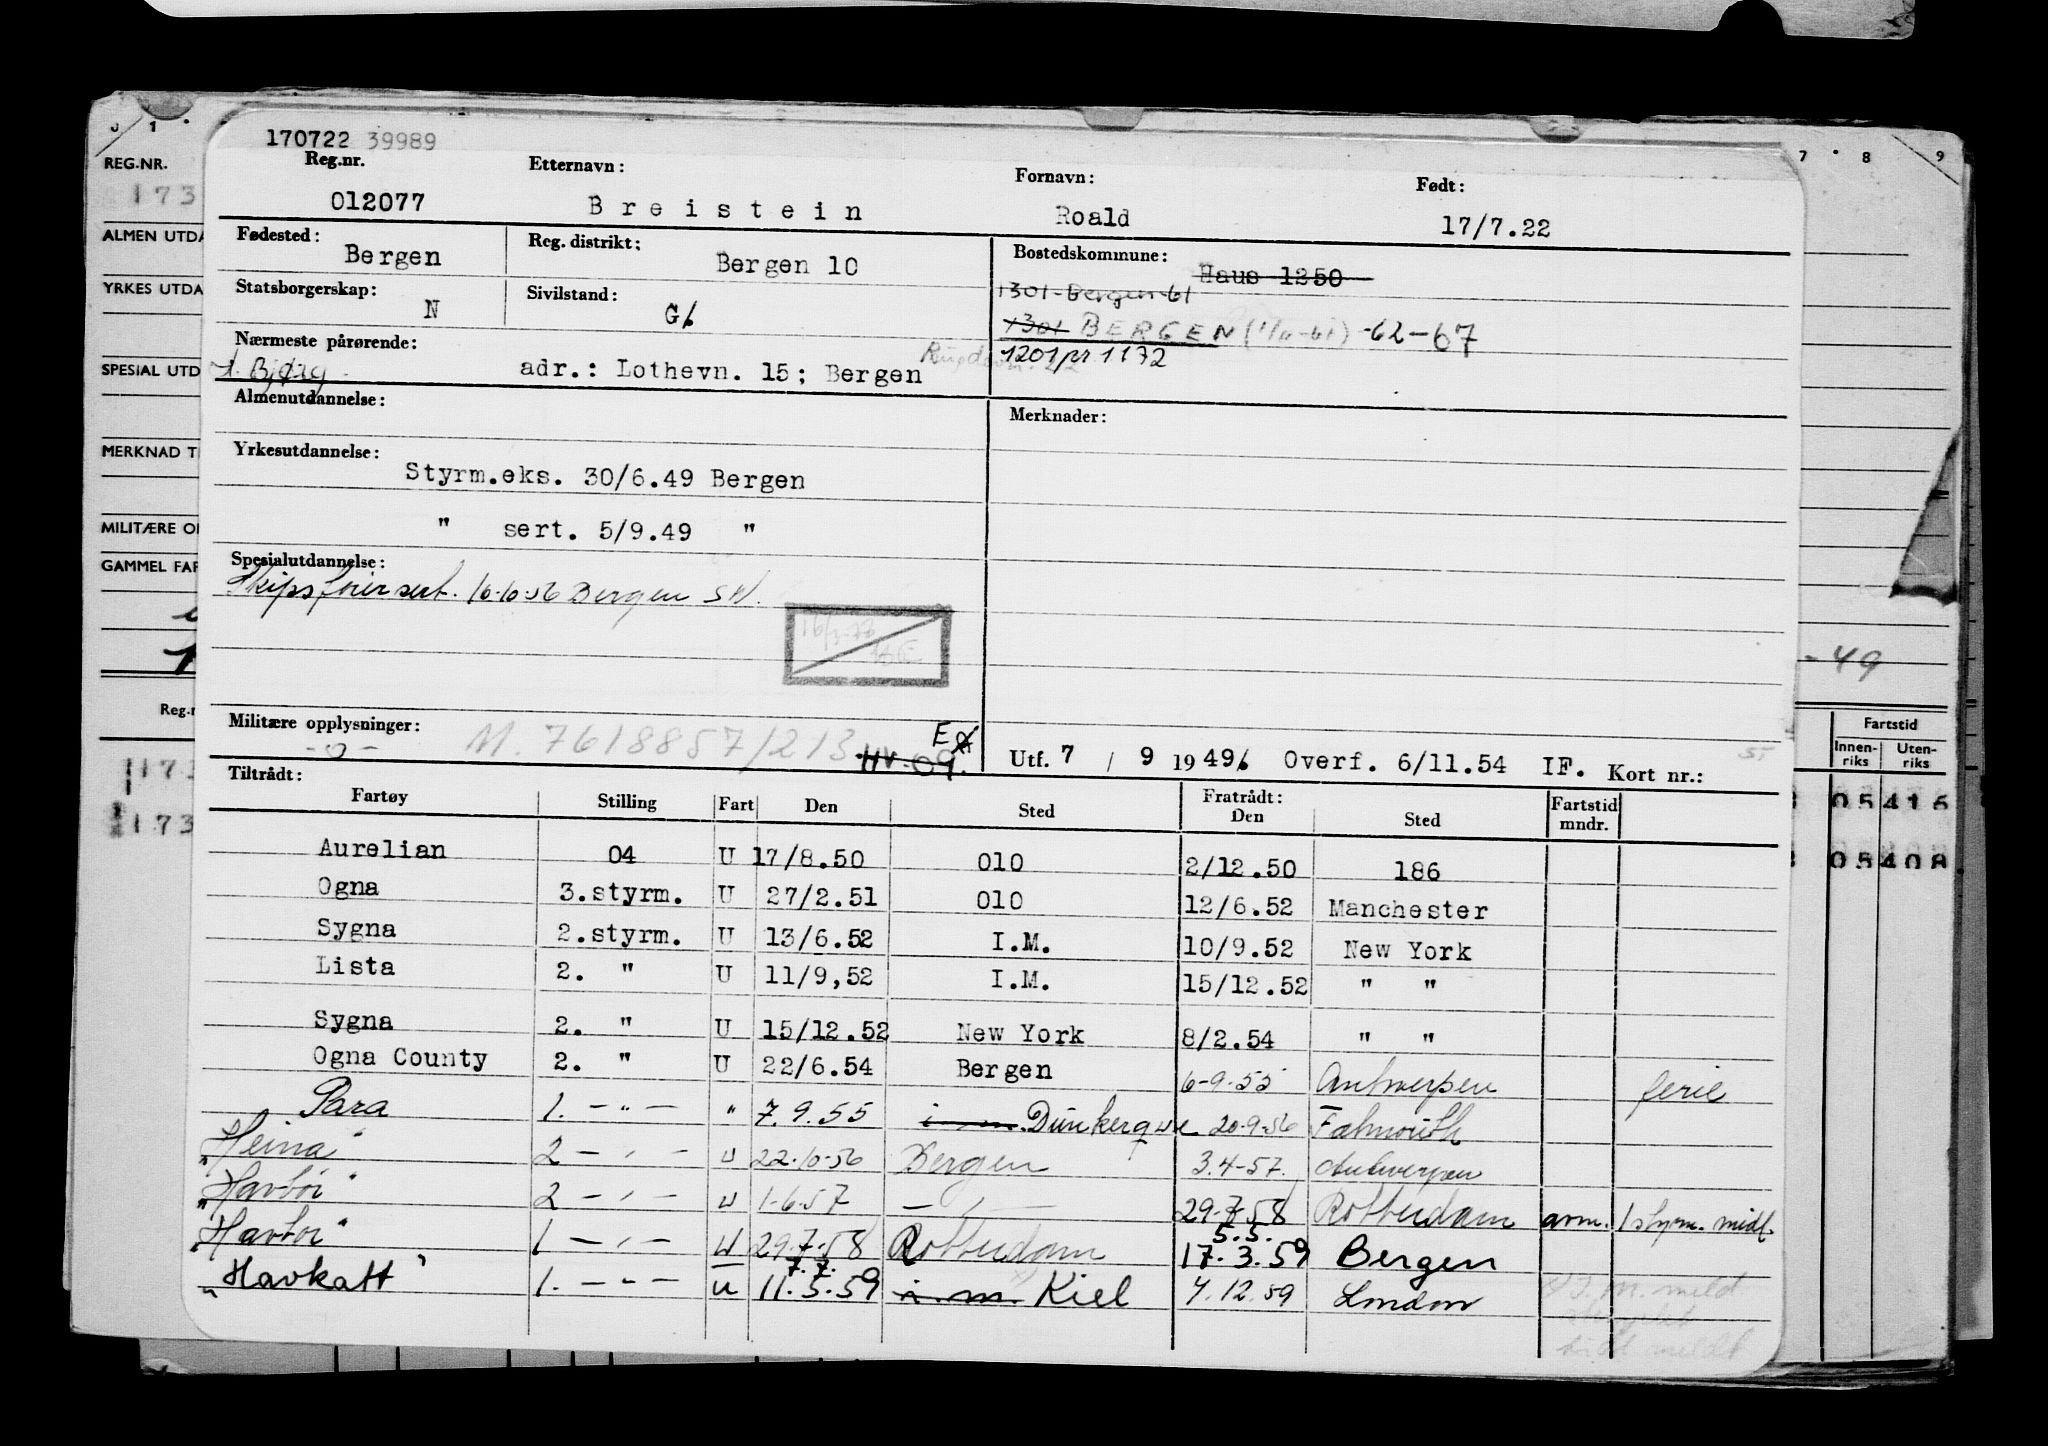 170722 39989
Reg.nr. Etternavn: Fornavn: Født:
012077 Breistein Roald 17/7.22
Fødested: Bergen Reg. distrikt: Bergen 10 Bostedskommune: Haus 1250
1301 Bergen 61
Statsborgerskap: N Sivilstand: G
1301 BERGEN -62-67
Nærmeste pårørende: 1201 pr 1172
Bjørg adr.: Lothevn. 15; Bergen
Almenutdannelse: Merknader:
Yrkesutdannelse:
Styrm.eks. 30/6.49 Bergen
" sert. 5/9.49 "
Spesialutdannelse:
Skipsførersert. 10-10-56 Bergen
Militære opplysninger: M. 7618857/213 HV-09.
-o-
Utf. 7 / 9 1949 Overf. 6/11.54 IF. Kort nr.:
Tiltrådt: Fratrådt:
Fartøy Stilling Fart Den Sted Den Sted Fartstid mndr.
Aurelian 04 U 17/8.50 010 2/12.50 186
Ogna 3.styrm. U 27/2.51 010 12/6.52 Manchester
Sygna 2.styrm. U 13/6.52 I.M. 10/9.52 New York
Lista 2. " U 11/9,52 I.M. 15/12.52 " "
Sygna 2. " U 15/12.52 New York 8/2.54 " "
Ogna County 2. " U 22/6.54 Bergen 6-9-55 Antwerpen ferie
Para 1. -"- " 7.9.55 Dunkerque 20-9-56 Falmouth
"Heina" 2 -"- u 22-10-56 Bergen 3.4-57. Antwerpen
"Havbør" 2 -"- u 1-6-57 -"- 29-7-58 Rotterdam avm. 1 styrm. midl.
5.5.
"Havbør" 1 -"- u 29-7-58 Rotterdam 17.3.59 Bergen
7.7.
"Havkatt" 1. -"- u 11.5.59 i. m. Kiel 4.12.59 London
REG.NR.
173
ALMEN UTDA
YRKES UTDA
SPESIAL UTD
MERKNAD T
MILITÆRE O
GAMMEL FAR
Reg.n
173
173
7 8 9
-49
Fartstid
Innen-riks Uten-riks
05 416
05 408